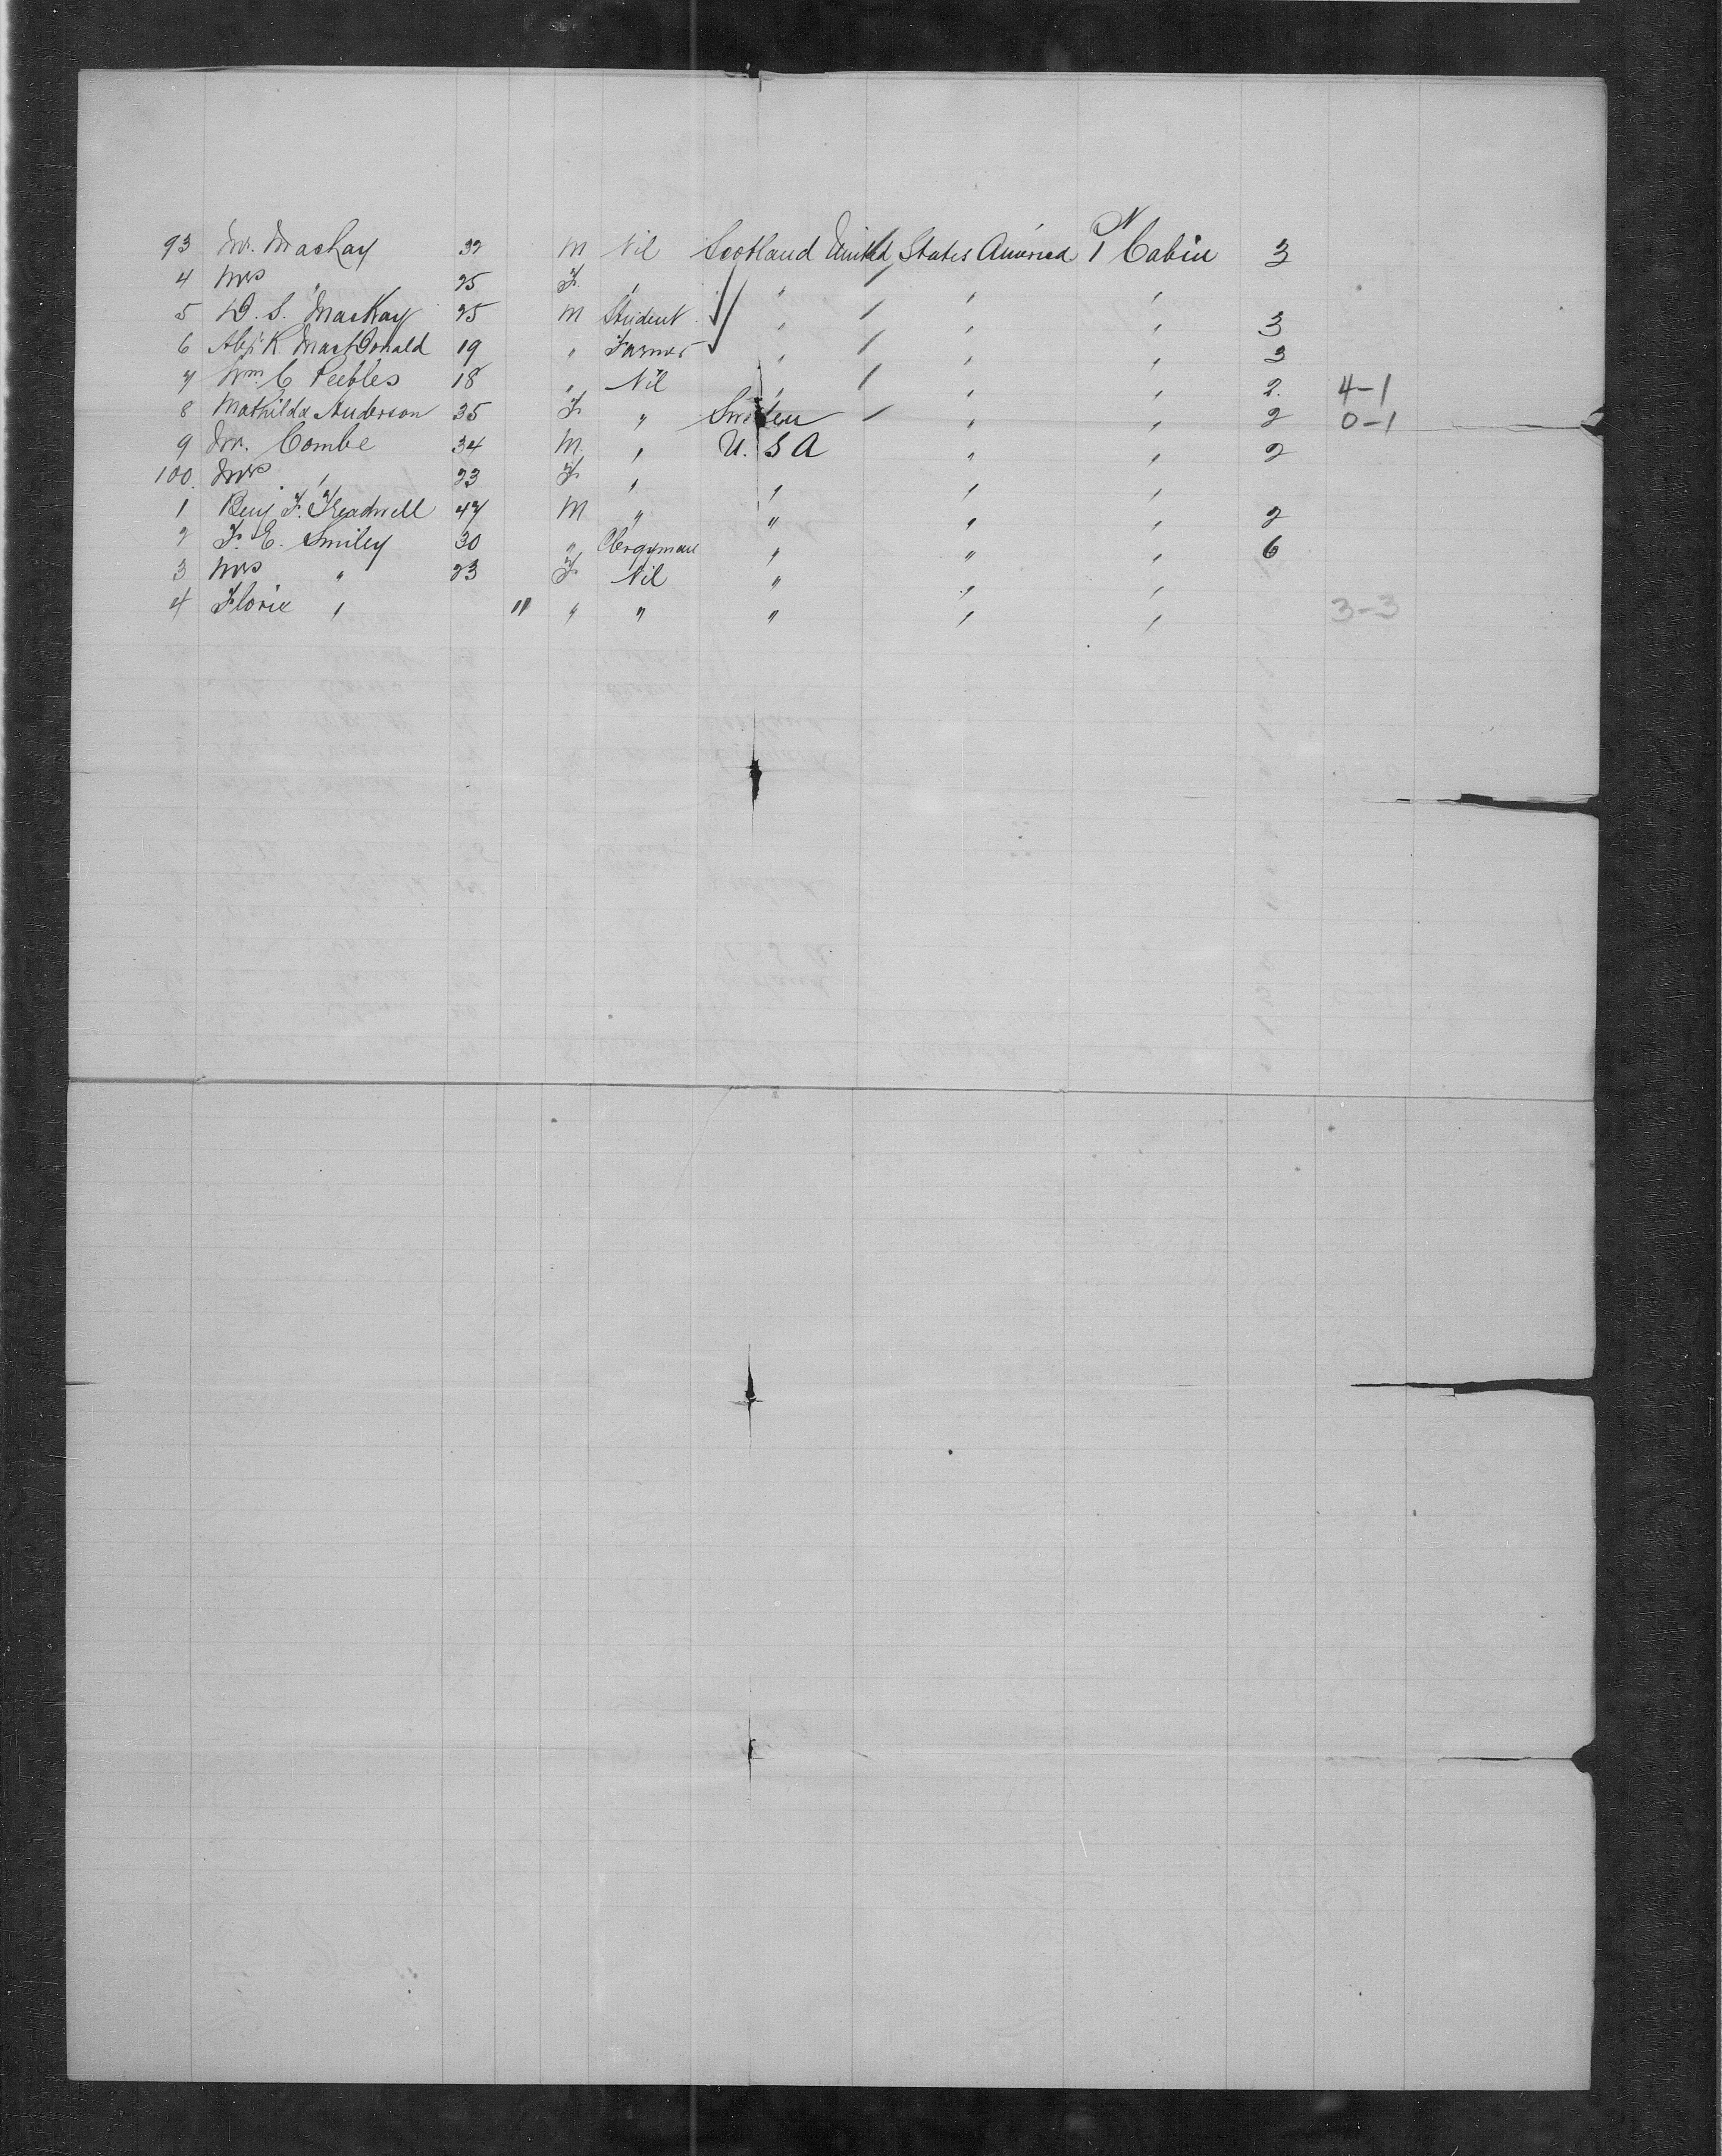 93 Mr. MacKay 32 M Nil Scotland United States America 1 Cabin 3
4 Mrs " 25 F. " " " "
5 D. S. MacKay 25 M Student " " " 3
6 Alex K MacDonald 19 " Farmer " " " 3
7 Wm C Peebles 18 " Nil " " " 2. 4-1
8 Mathilda Anderson 35 F " Sweden " " 2 0-1
9 Mr. Combe 34 M " U. S A " " 2
100. Mrs " 23 F " " " "
1 Benj F. Treadwell 47 M " " " " 2
2 F. E. Smiley 30 " Clergyman " " " 6
3 Mrs " 23 F Nil " " "
4 Florie " 11 " " " " " 3-3